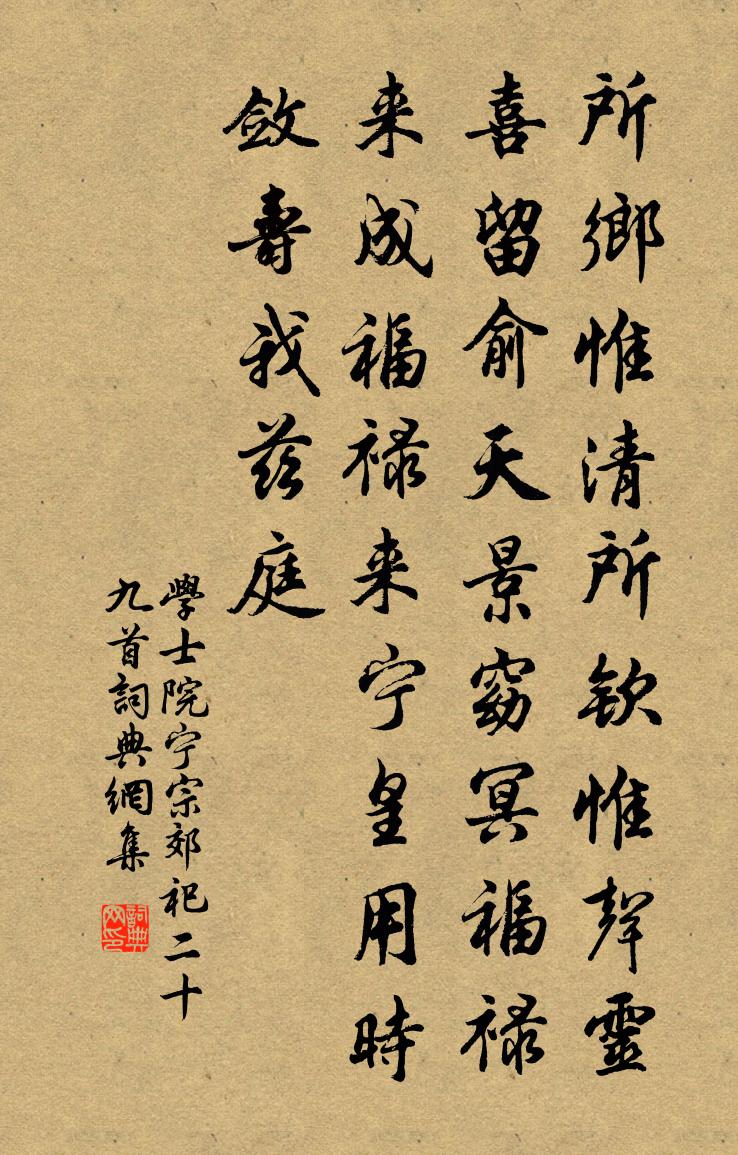 所鄉惟清所欽惟聲靈
喜留俞天景窈冥福禄
来成福禄来宁皇用時
斂壽我茲庭
學士院宁宗郊祀二十
九首詞典網集
詞典网印